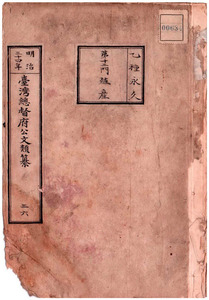 乙種永久
第十一門 殖産
明治
三十四年
臺灣總督府公文類纂
三六